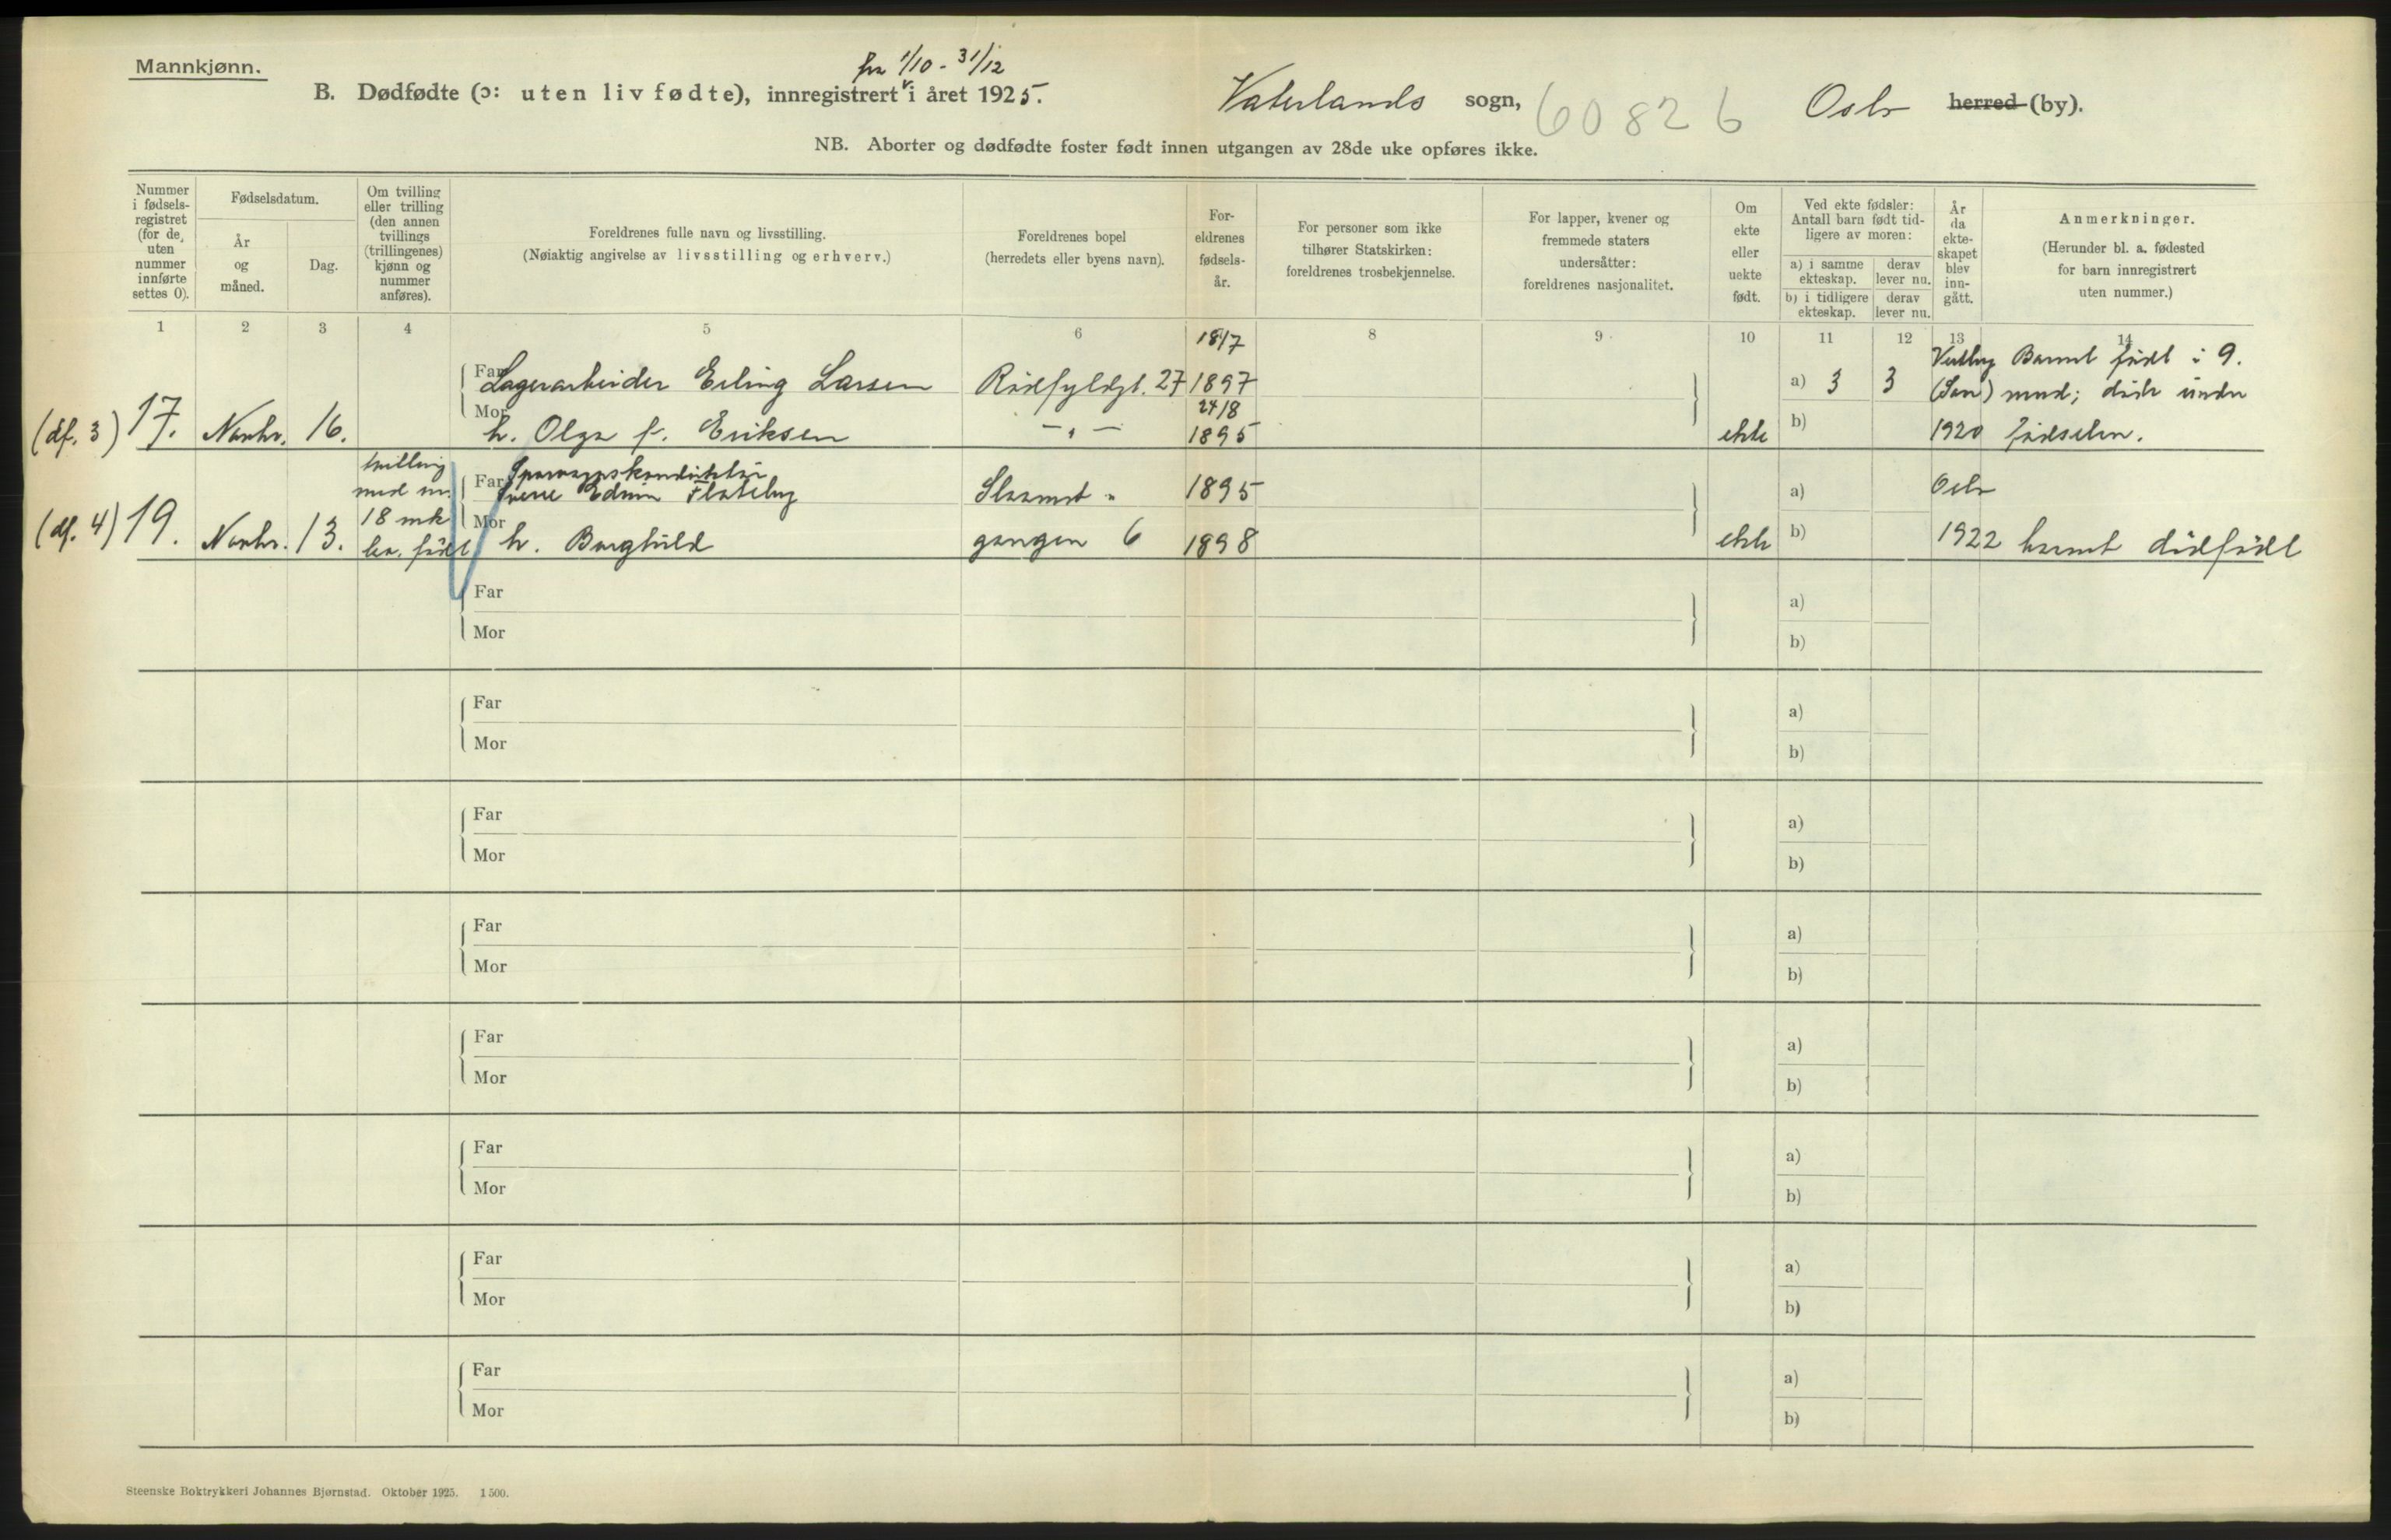 Mannkjønn.
fra 1/10 - 31/12
B. Dødfødte (ɔ: uten liv fødte), innregistrert i året 1925.
Vaterlands sogn, 60826 Oslo herred (by).
NB. Aborter og dødfødte foster født innen utgangen av 28de uke opføres ikke.
Nummer i fødsels- registret (for de uten nummer innførte settes 0).
Fødselsdatum.
År og måned.
Dag.
Om tvilling eller trilling (den annen tvillings (trillingenes) kjønn og nummer anføres).
Foreldrenes fulle navn og livsstilling.
(Nøiaktig angivelse av livsstilling og erhverv.)
Foreldrenes bopel
(herredets eller byens navn).
For- eldrenes fødsels- år.
For personer som ikke tilhører Statskirken: foreldrenes trosbekjennelse.
For lapper, kvener og fremmede staters undersåtter: foreldrenes nasjonalitet.
Om ekte eller uekte født.
Ved ekte fødsler: Antall barn født tid- ligere av moren:
a) i samme ekteskap.
derav lever nu.
b) i tidligere ekteskap.
derav lever nu.
År da ekte- skapet blev inn- gått.
Anmerkninger.
(Herunder bl. a. fødested for barn innregistrert uten nummer.)
1 2 3 4 5 6 8 9 10 11 12 13 14
18/7
Far Lagerarbeider Erling Larsen Rødfyldgt. 27 1897 a) 3 3 Vestby Barnet født i 9.
24/8 (Son) mnd; døde under
(df. 3) 17. Novbr. 16. Mor h. Olga f. Eriksen - " - 1895 ekte b) 1920 fødselen.
tvilling
med nr. Far Sporvognskonduktør
Sverre Edvin Flateby Staamst " 1895 a) Oslo
(df. 4) 19. Novbr. 13. 18 mk lev. født Mor h. Borghild gangen 6 1898 ekte b) 1922 barnet dødfødt
Far a)
Mor b)
Far a)
Mor b)
Far a)
Mor b)
Far a)
Mor b)
Far a)
Mor b)
Far a)
Mor b)
Far a)
Mor b)
Far a)
Mor b)
Steenske Boktrykkeri Johannes Bjørnstad. Oktober 1925. 1500.